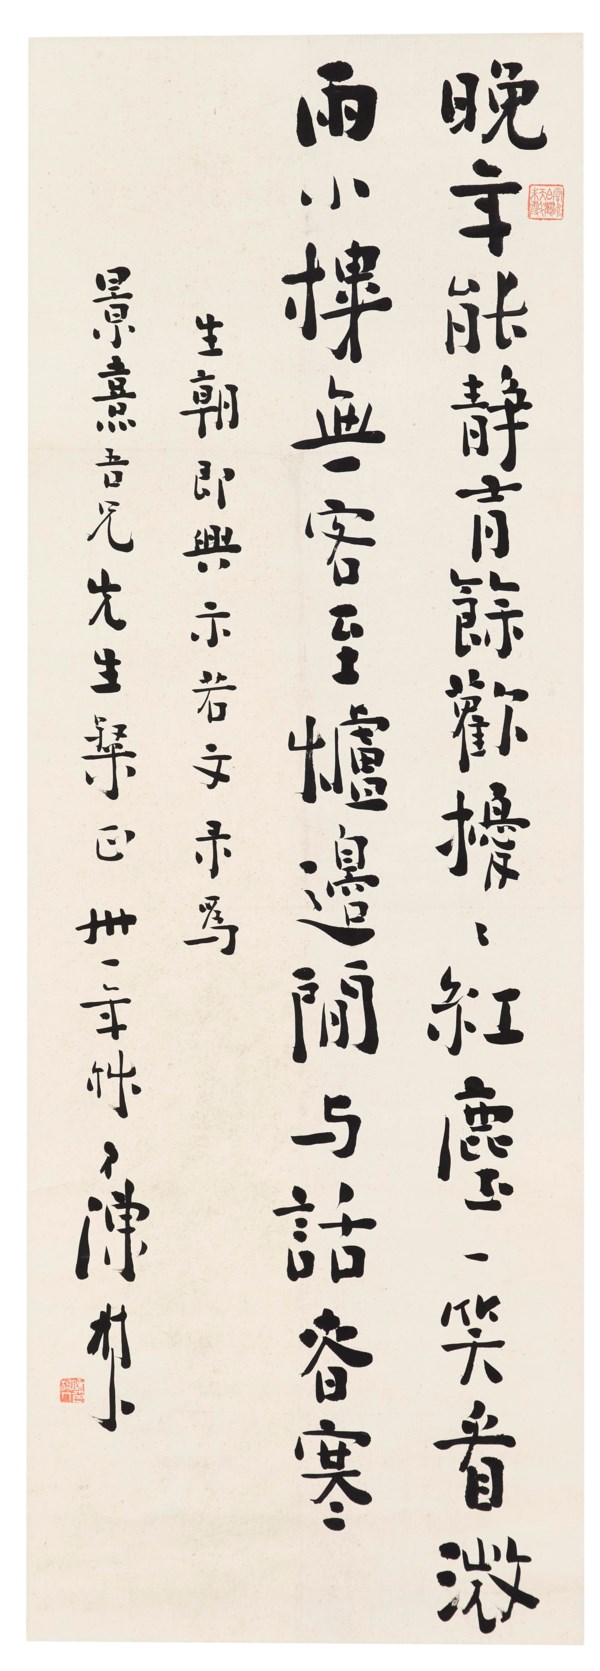 晚年能靜有餘歡擾〻紅塵一笑看微
雨小樓無客至爐邊閒与話春寒
生朝即興示若文录為
景熹吾兄先生粲正 卅一年秋弟陳樹人